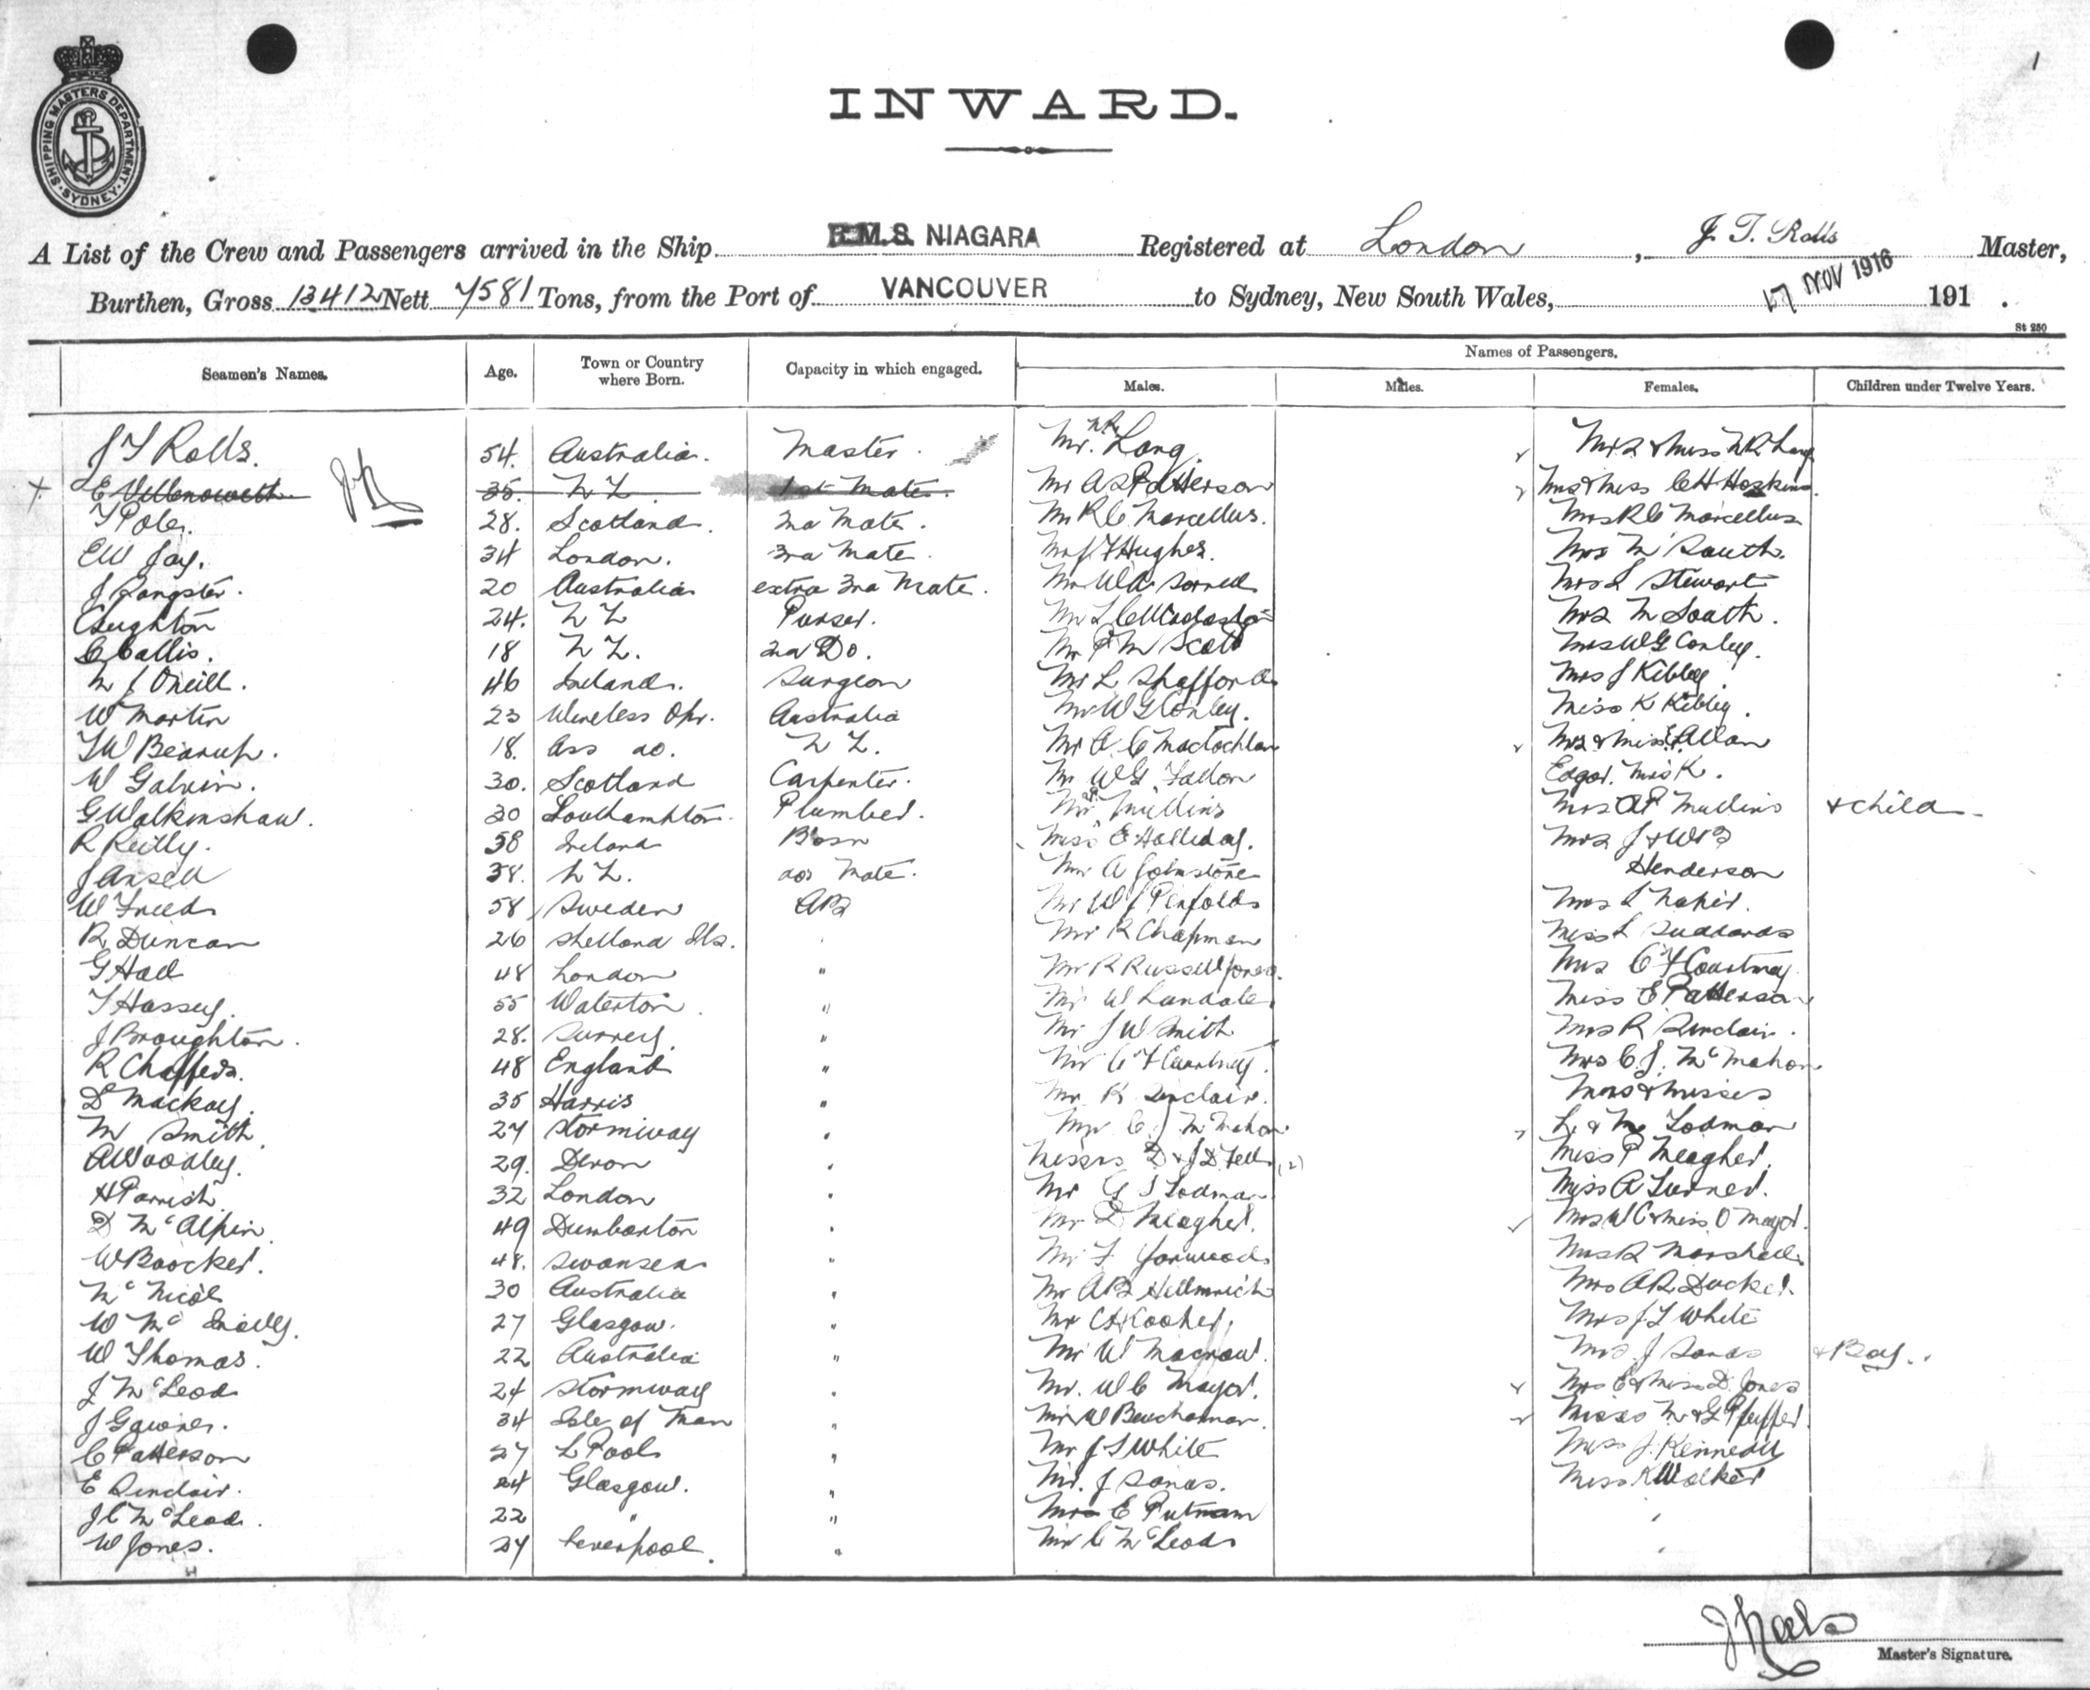 1
SHIPPING MASTERS DEPARTMENT · SYDNEY ·
INWARD.
A List of the Crew and Passengers arrived in the Ship R.M.S. NIAGARA Registered at London, J. T. Rolls Master,
Burthen, Gross 13412 Nett 7581 Tons, from the Port of VANCOUVER to Sydney, New South Wales, 17 NOV 1916 191 .
St 250
Seamen's Names. Age. Town or Country where Born. Capacity in which engaged. Names of Passengers.
Males. Males. Females. Children under Twelve Years.
J T Rolls. 54. Australia. Master. Mr. Lang. Mrs & Miss Lang
E 35. N Z. 1st Mate. Mr A S Patterson Mrs & Miss C H Hoskins
T Poles. 28. Scotland. 2nd Mate. Mr R C Marcellus. Mrs R C Marcellus
E W Jay. 34 London. 3rd Mate. Mr J T Hughes. Mrs M South.
J Sangster. 20 Australia extra 3rd Mate. Mr W A Mrs L Stewart
C Leighton 24. N Z Purser. Mr L C Mrs M South.
C Callis. 18 N Z. 2nd Do. Mr P M Scott Mrs W G Conley.
N J O'Neill. 46 Ireland. Surgeon Mr L Shafford Mrs J Kibbey.
W Martin 23 Wireless Opr. Australia Mr W G Conley. Miss K Kibbey.
T W Bearup. 18. Ass do. N Z. Mr A. C MacLochlan Mrs & Miss E Allan
W Galvin. 30. Scotland Carpenter. Mr W G Fallon Edgar. Mrs K.
G Walkinshaw. 30 Southampton. Plumber. Mr. Mullins Mrs A P Mullins & child
R Reilly. 58 Ireland Bosn Miss E Halliday. Mrs J & W B
J Ansell 38. N Z. Mate. Mr A Johnstone Henderson
W Freed 58 Sweden AB Mr W J Penfolds Mrs L Napier.
R Duncan 26 Shetland Ils. Mr R Chapman Miss L Suddards
G Hall 48 London " Mr R Russell Jones. Mrs C F Courtney
T Hassey. 55 Waterton. " Mr W Lundale Miss E Patterson
J Broughton. 28. Surrey. " Mr J W Smith Mrs R Sinclair.
R Chaffers. 48 England " Mr C F Courtney. Mrs C. J. McMahon
D Mackay. 35 Harris " Mr R Sinclair. Mrs & Misses
M Smith. 27 Stornway " Mr C. J McMahon L. & M Todman
A Woodley. 29. Devon " Messrs D & J D Fell (2) Miss P Meagher.
H Parrish. 32 London " Mr G S Todman Miss A Turner.
D McAlpin. 49 Dumbarton " Mr D Meagher. Mrs W C & Miss O Mayor.
W Boocker. 48. Swansea " Mr F Yarwood Mrs R Marshall.
McNicol 30 Australia " Mr A B Hellmrich Mrs A R Ducker.
W Mc 27 Glasgow. " Mr C H Kooher. Mrs J T White
W Thomas. 22 Australia " Mr W Macrow. Mrs J Sands & Boy.
J McLeod 24 Stornway " Mr. W C Mayor. Mrs E & Miss D. Jones
J Gawnes. 34 Isle of Man " Mr W Beuchamon. Misses M & G Pfeiffer.
C Patterson 27 L Pool " Mr J T White Miss J. Kennedy
E Sinclair. 24 Glasgow. " Mr. J Sands. Miss K Walker
J C McLeod. 22 " " Mrs E Putnam
W Jones. 27 Liverpool. " Mr C McLeod
Master's Signature.